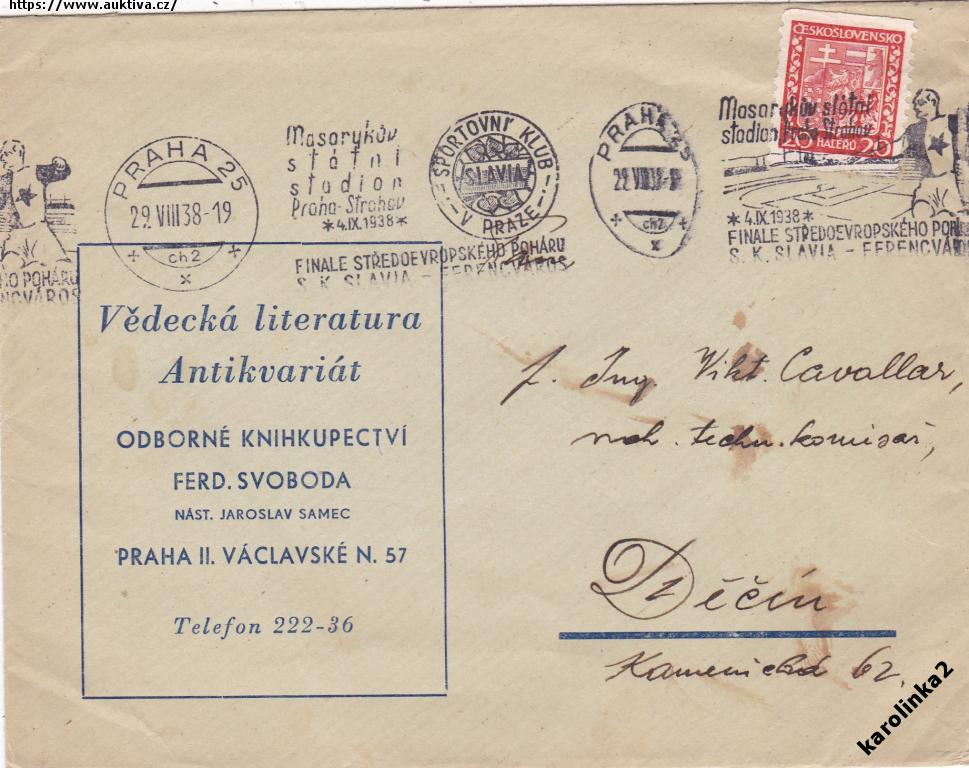 https://www.auktiva.cz/
ČESKOSLOVENSKO
20 HALÉŘŮ 20
PRAHA 25
29.VIII 38-19
ch2
x
Masarykův
státní
stadion
Praha-Strahov
*4.IX.1938*
SPORTOVNÍ KLUB
SLAVIA
V PRAZE
FINALE STŘEDOEVROPSKÉHO POHÁRU
S. K. SLAVIA – FERENCVÁROS
PRAHA 25
29.VIII 38-
ch2
x
Masarykův státní
stadion Praha Strahov
*4.IX.1938*
FINALE STŘEDOEVROPSKÉHO POH
S. K. SLAVIA – FERENCVÁROS
HO POHÁRU
NCVÁROS
Vědecká literatura
Antikvariát
ODBORNÉ KNIHKUPECTVÍ
FERD. SVOBODA
NÁST. JAROSLAV SAMEC
PRAHA II. VÁCLAVSKÉ N. 57
Telefon 222-36
Ing. Vikt. Cavallar,
techn. komisař,
Děčín
Kamenická 62.
karolinka2